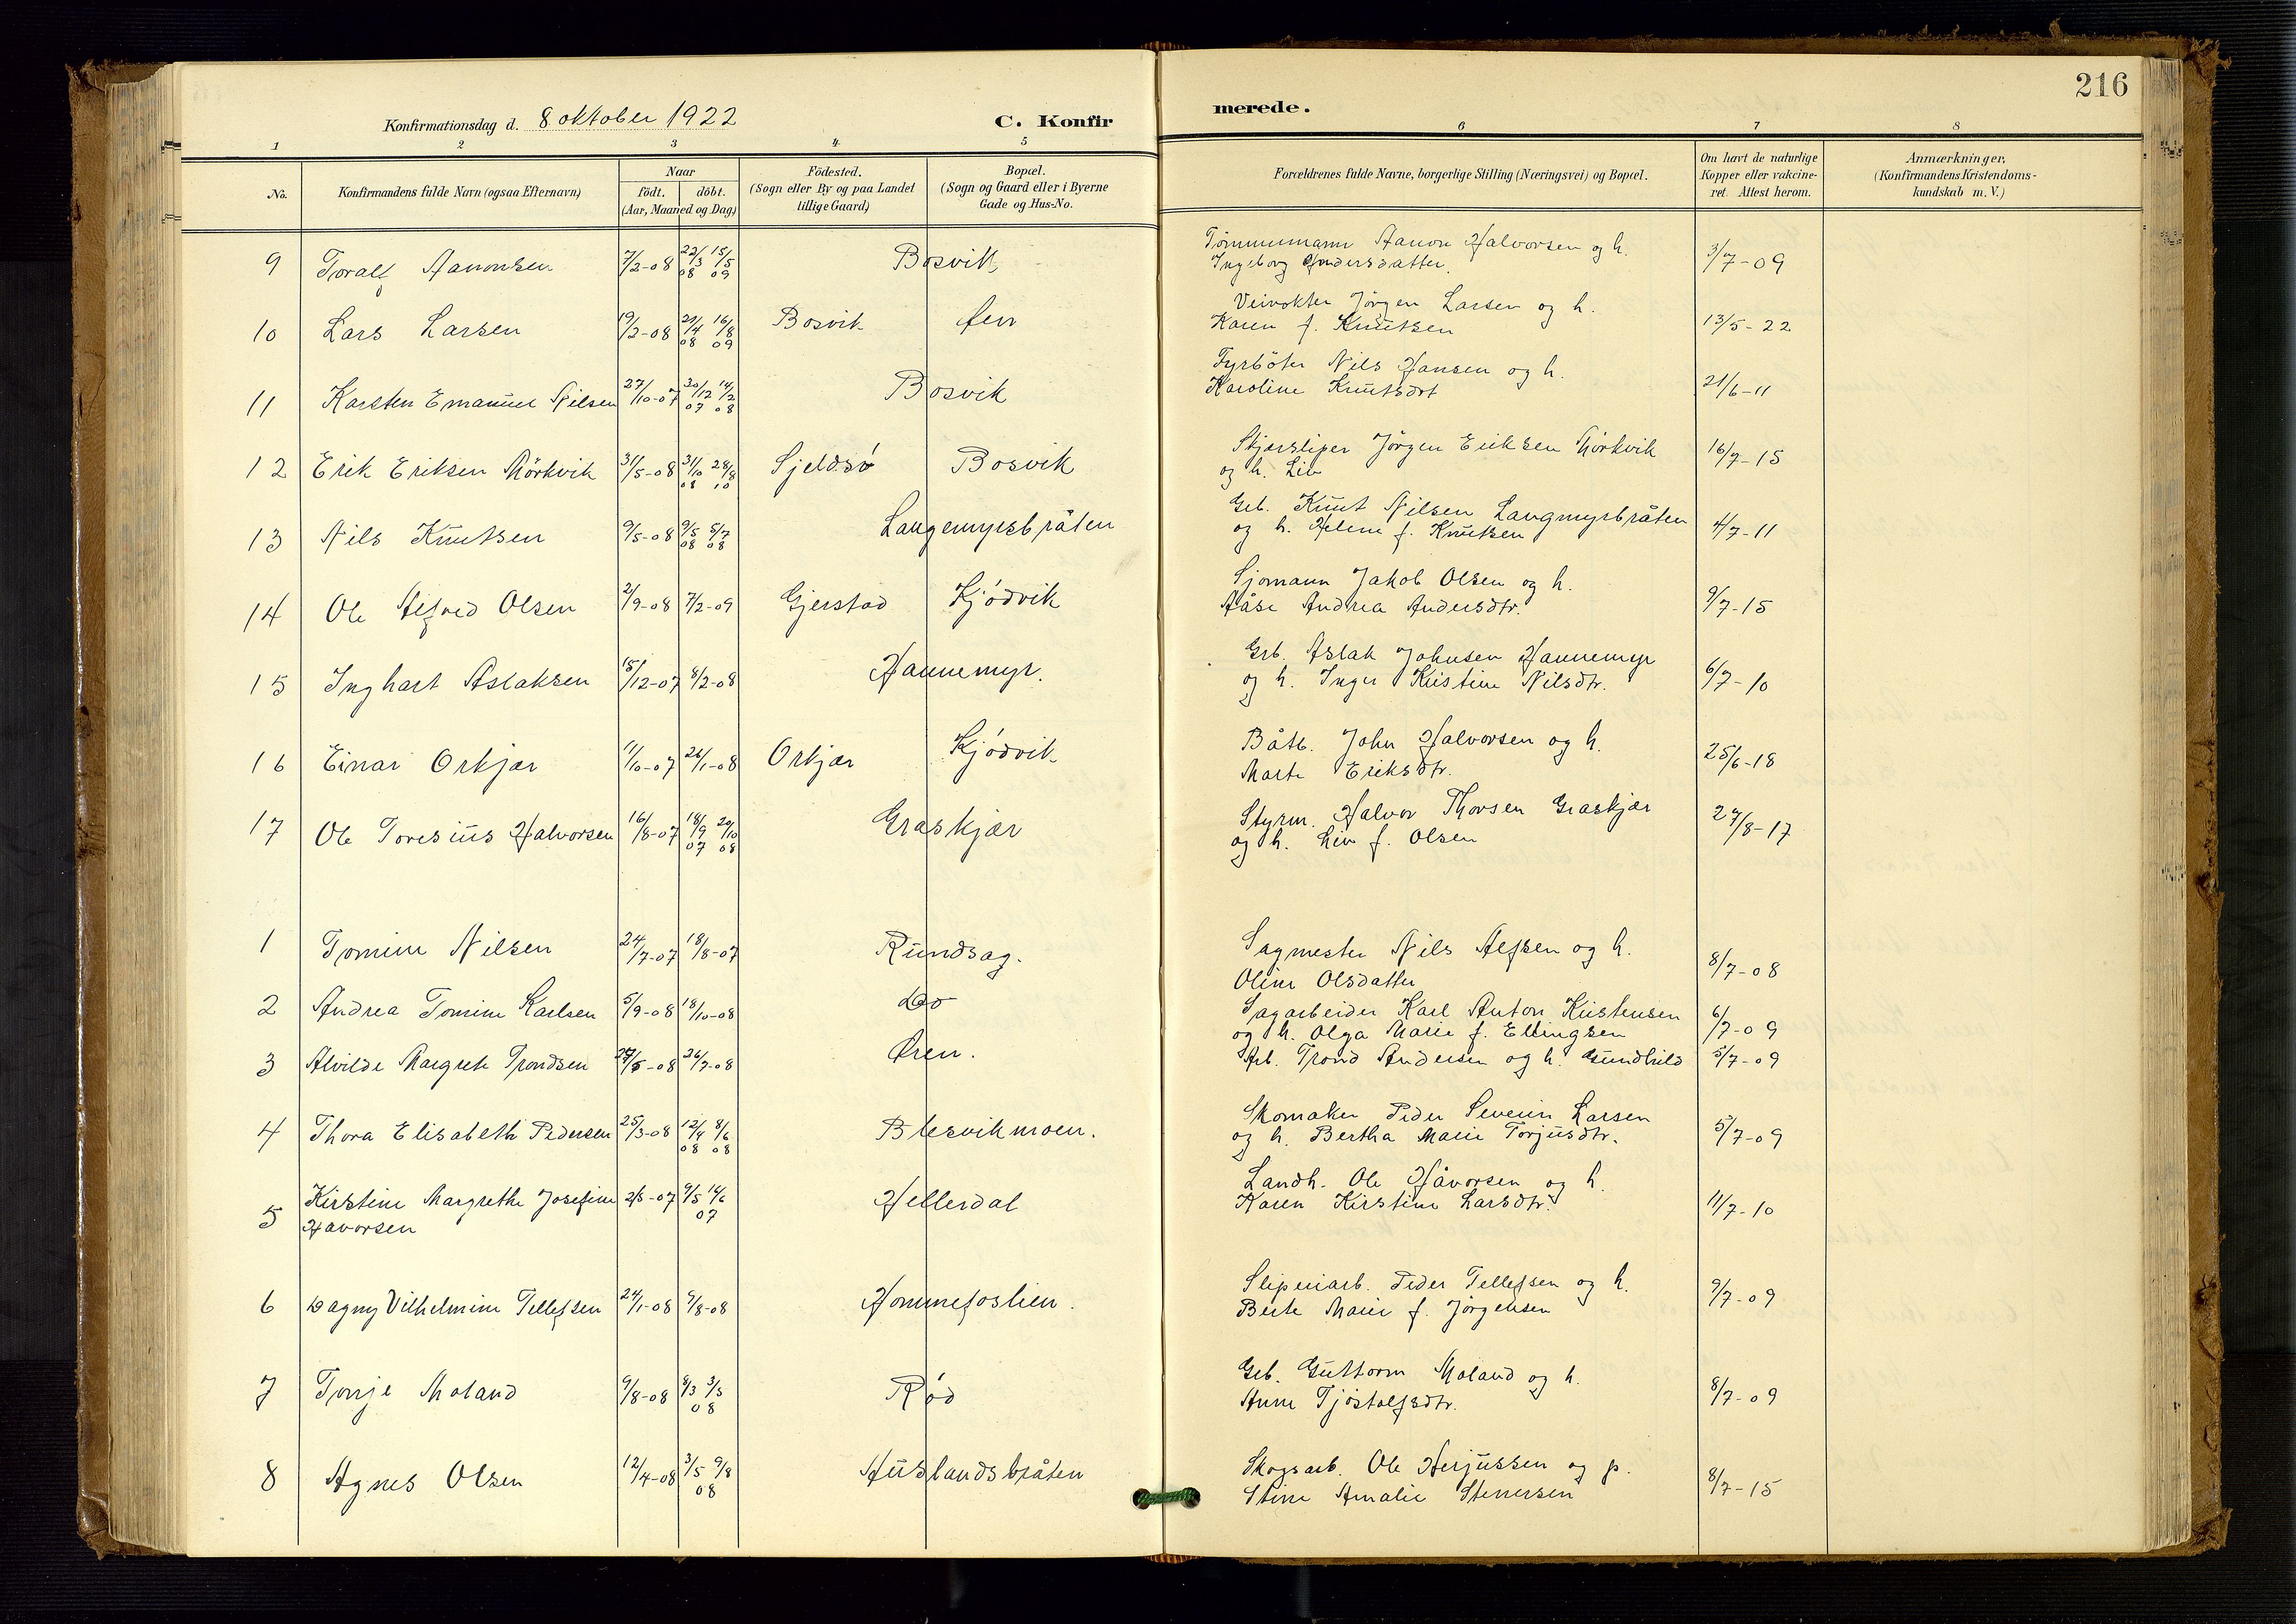 216
Konfirmationsdag d. 8 oktober 1922
C. Konfir
merede.
1 2 3 4 5 6 7 8
No.
Konfirmandens fulde Navn (ogsaa Efternavn)
Naar
födt. döbt.
(Aar, Maaned og Dag)
Födested.
(Sogn eller By og paa Landet
tillige Gaard)
Bopæl.
(Sogn og Gaard eller i Byerne
Gade og Hus-No.
Forældrenes fulde Navne, borgerlige Stilling (Næringsvei) og Bopæl.
Om havt de naturlige
Kopper eller vakcine-
ret. Attest herom.
Anmærkninger.
(Konfirmandens Kristendoms-
kundskab m. V.)
9 Toralf Aanonsen 7/2-08 22/3 08 15/5 09 Bosvik Tömmermann Aanon Halvorsen og h.
Ingeborg Andersdatter. 3/7-09
10 Lars Larsen 19/2-08 21/4 08 16/8 09 Bosvik Veivokter Jörgen Larsen og h.
Karen f. Knutsen 13/5-22
11 Karsten Emanuel Nilsen 27/10-07 30/12 07 14/2 08 Bosvik Fyrböter Nils Hansen og h.
Karoline Knutsdt 21/6-11
12 Erik Eriksen Mörkvik 31/5-08 31/10 08 28/8 10 Sjeldsö Bosvik Skjærsliper Jörgen Eriksen Mörkvik
og h. Liv 16/7-15
13 Nils Knutsen 9/5-08 9/5 08 5/7 08 Langemyrsbråten Grb. Knut Nilsen Langmyrbråten
og h. Helene f. Knutsen 4/7-11
14 Ole Alfred Olsen 2/9-08 7/2-09 Gjerstad Kjödvik Sjömann Jakob Olsen og h.
Aåse Andrea Andersdtr. 9/7-15
15 Inghart Aslaksen 15/12-07 8/2-08 Hannemyr. Grb. Aslak Johnsen Hannemyr
og h. Inger Kristine Nilsdtr. 6/7-10
16 Einar Orkjær 11/10-07 26/1-08 Orkjær Kjödvik Båtb. John Halvorsen og h.
Marte Eriksdtr. 25/6-18
17 Ole Toresius Halvorsen 16/8-07 18/9 07 20/10 08 Graskjær Styrm. Halvor Thorsen Graskjær
og h. Liv f. Olsen 27/8-17
1 Tomine Nilsen 24/7-07 18/8-07 Rundsag. Sagmester Nils Alfsen og h.
Oline Olsdatter 8/7-08
2 Andrea Tomine Karlsen 5/9-08 18/10-08 Do Sagarbeider Karl Anton Kristensen
og h. Olga Marie f. Ellingsen 6/7-09
3 Alvilde Margrete Trondsen /5-08 26/7-08 Øren. Arb. Trond Andersen og h. Gundhild 5/7-09
4 Thora Elisabeth Pedersen 25/3-08 12/4 08 8/6 08 Blesvikmoen. Skomaker Peder Severin Larsen
og h. Bertha Marie Torjusdtr. 5/7-09
5 Kirstine Margrethe Josefine
Håvorsen 2/3-07 9/5 16/6 07 Hellersdal Landh. Ole Håvorsen og h.
Karen Kirstine Larsdtr. 11/7-10
6 Dagny Vilhelmine Tellefsen 24/1-08 9/8-08 Hommefoslien. Sliperiarb. Peder Tellefsen og h.
Berte Marie f. Jörgensen 9/7-09
7 Tonje Moland 9/8-08 8/3 3/5 08 Röd Grb. Guttorm Moland og h.
Anne Tjöstolfsdtr. 8/7-09
8 Agnes Olsen 12/4-08 3/5 9/8 08 Auslandsbråten Skogsarb. Ole Herjussen og p.
Stine Amalie Stenersen 8/7-15